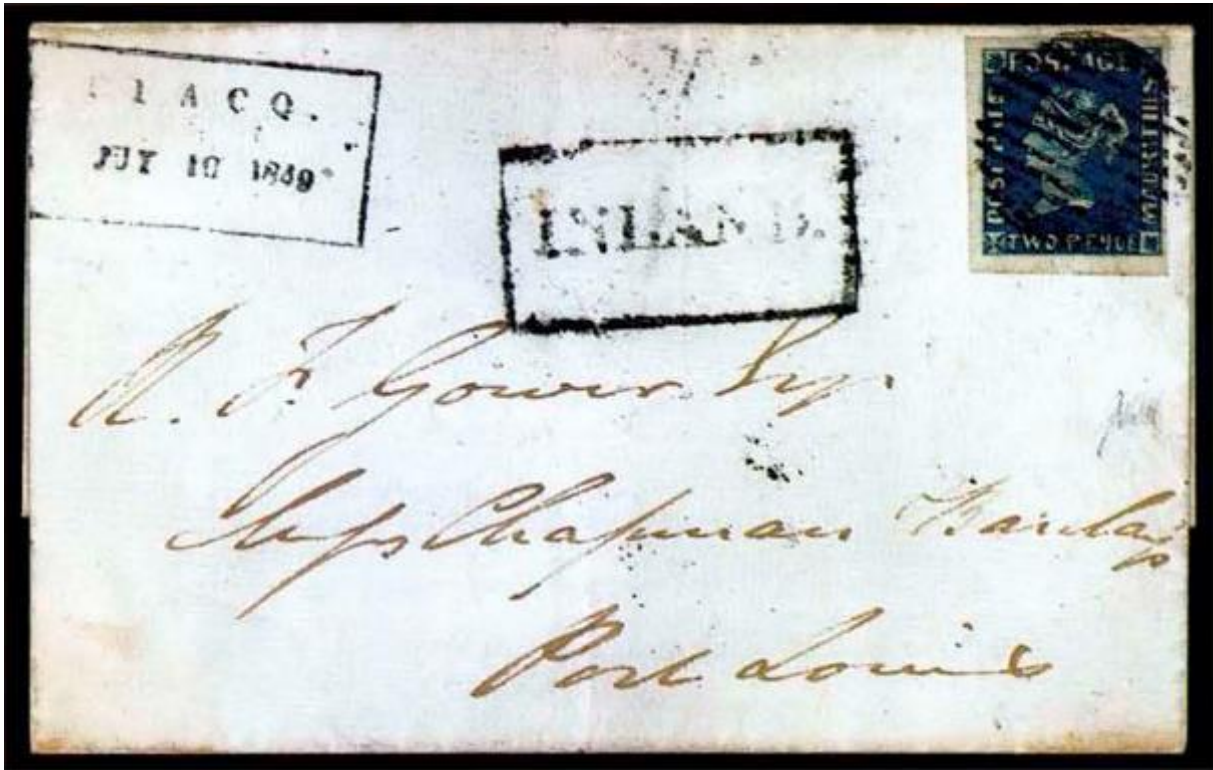 FLACQ.
JUY 10 1849
INLAND.
POSTAGE
POST PAID
MAURITIUS
TWO PENCE
A. F. Gower Esqr.
Chapman Barclay
Port Louis